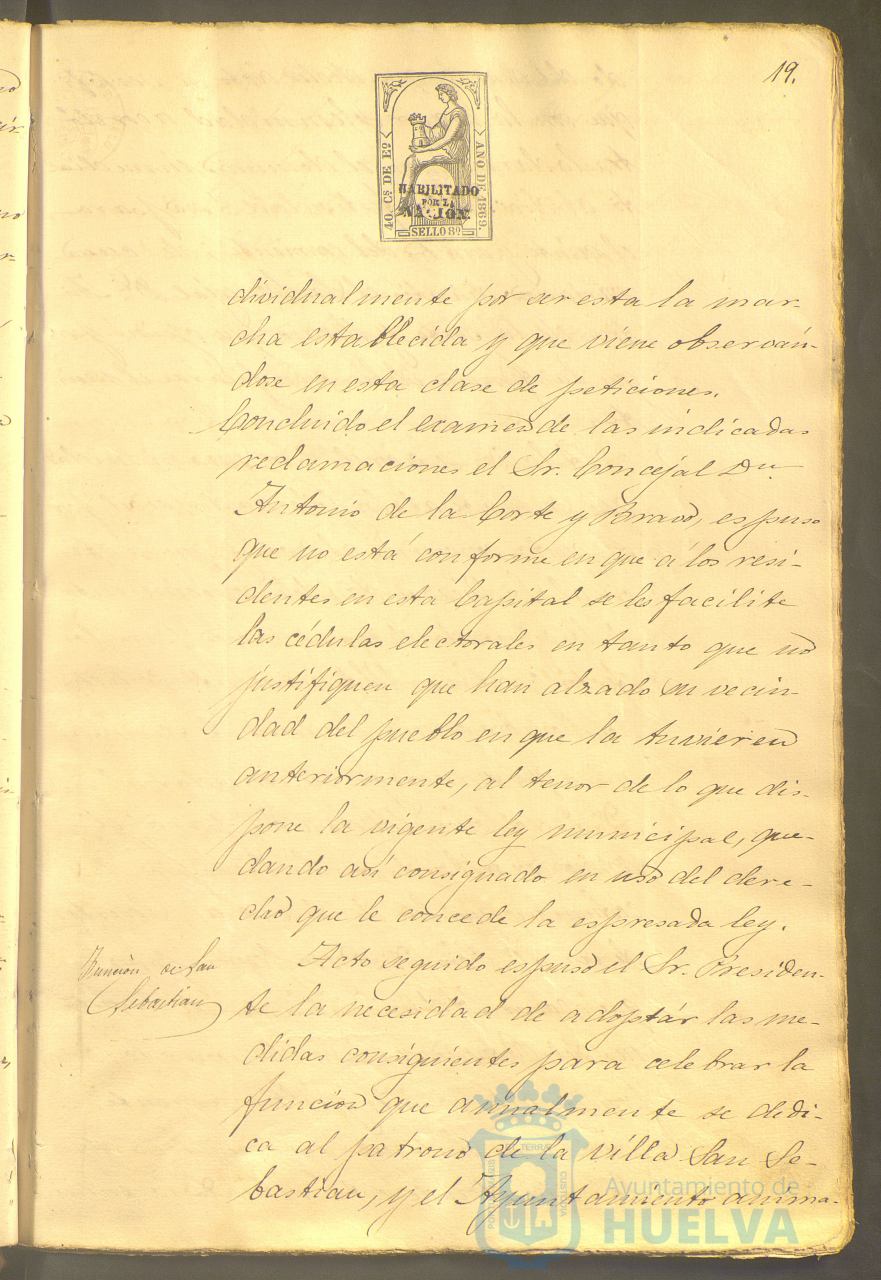 19.
40. Cs DE Eo
AÑO DE 1869.
HABILITADO
POR LA
NACION.
SELLO 8º
dividualmente por ser esta la mar-
cha establecida y que viene observán-
dose en esta clase de peticiones.
Concluido el examen de las indicadas
reclamaciones el Sr. Concejal Dn
Antonio de la Corte y Bravo, espuso
que no está conforme en que á los resi-
dentes en esta Capital se les facilite
las cédulas electorales en tanto que no
justifiquen que han alzado su vecin-
dad del pueblo en que la tuvieren
anteriormente, al tenor de lo que dis-
pone la vigente ley municipal, que-
dando así consignado en uso del dere-
cho que le concede la espresada ley.
Función de San
Sebastian
Acto seguido espuso el Sr. Presiden-
te la necesidad de adoptár las me-
didas consiguientes para celebrar la
función que anualmente se dedi-
ca al patrono de la villa San Se-
bastian, y el Ayuntamiento anima-
Ayuntamiento de
HUELVA